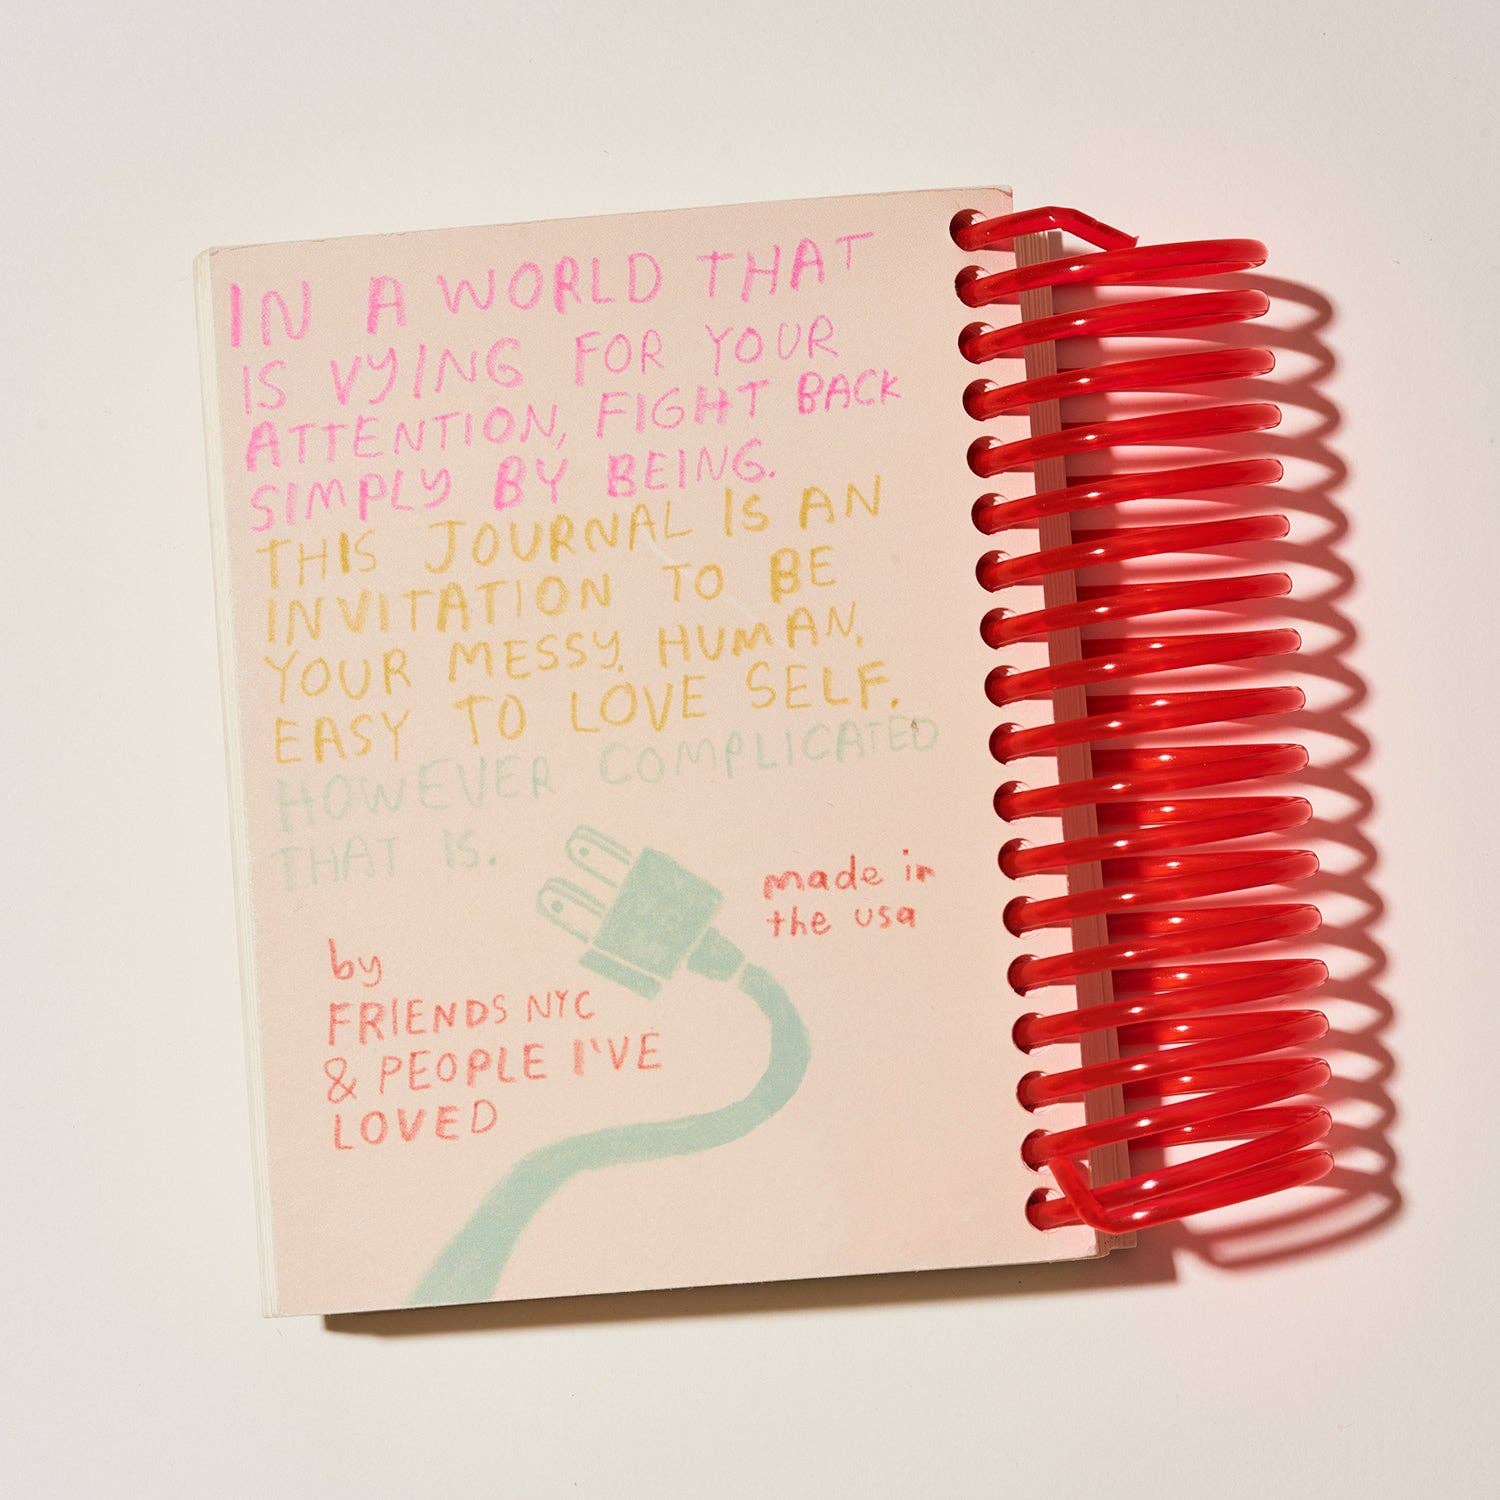 IN A WORLD THAT
IS VYING FOR YOUR
ATTENTION, FIGHT BACK
SIMPLY BY BEING.
THIS JOURNAL IS AN
INVITATION TO BE
YOUR MESSY, HUMAN,
EASY TO LOVE SELF.
HOWEVER COMPLICATED
THAT IS.
made in
the usa
by
FRIENDS NYC
& PEOPLE I'VE
LOVED